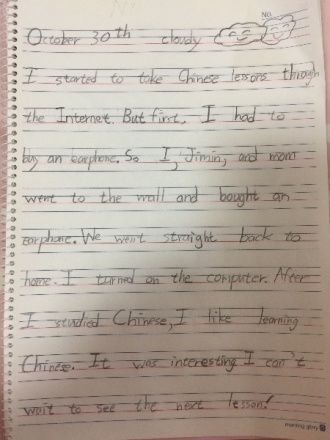 No.
October 30th cloudy
I started to take Chinese lessons through
the Internet. But first, I had to
buy an earphone. So I, Jimin, and mom
went to the mall and bought an
earphone. We went straight back to
home. I turned on the computer. After
I studied Chinese, I like learning
Chinese. It was interesting I can't
wait to see the next lesson!